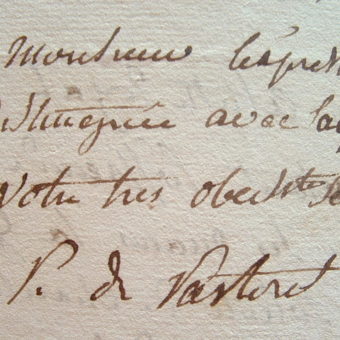 Monsieur l'expres
distinguée avec laq
Votre tres obeiste Se
P. de Pastoret